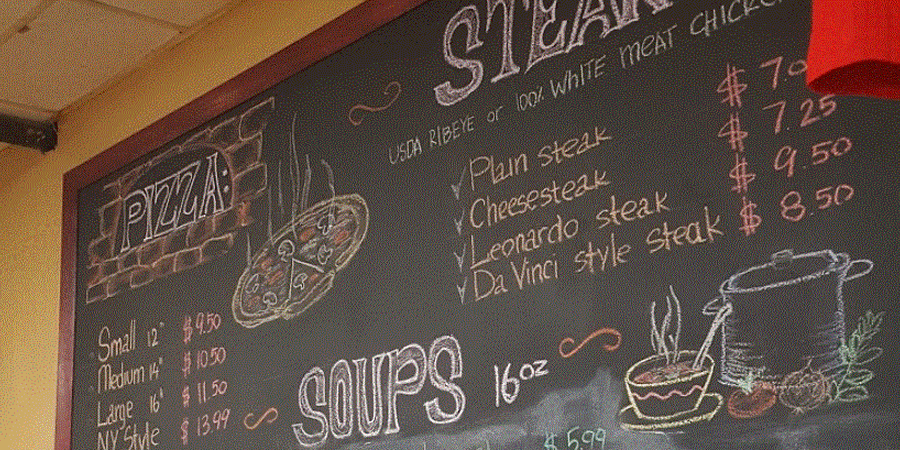 PIZZA:
Small 12" $ 9.50
Medium 14" $ 10.50
Large 16" $ 11.50
NY Style $ 13.99
USDA RIBEYE or 100% WHITE MEAT
Plain steak
Cheesesteak $ 7.25
Leonardo steak $ 9.50
Da Vinci style steak $ 8.50
SOUPS 16oz
$ 5.99